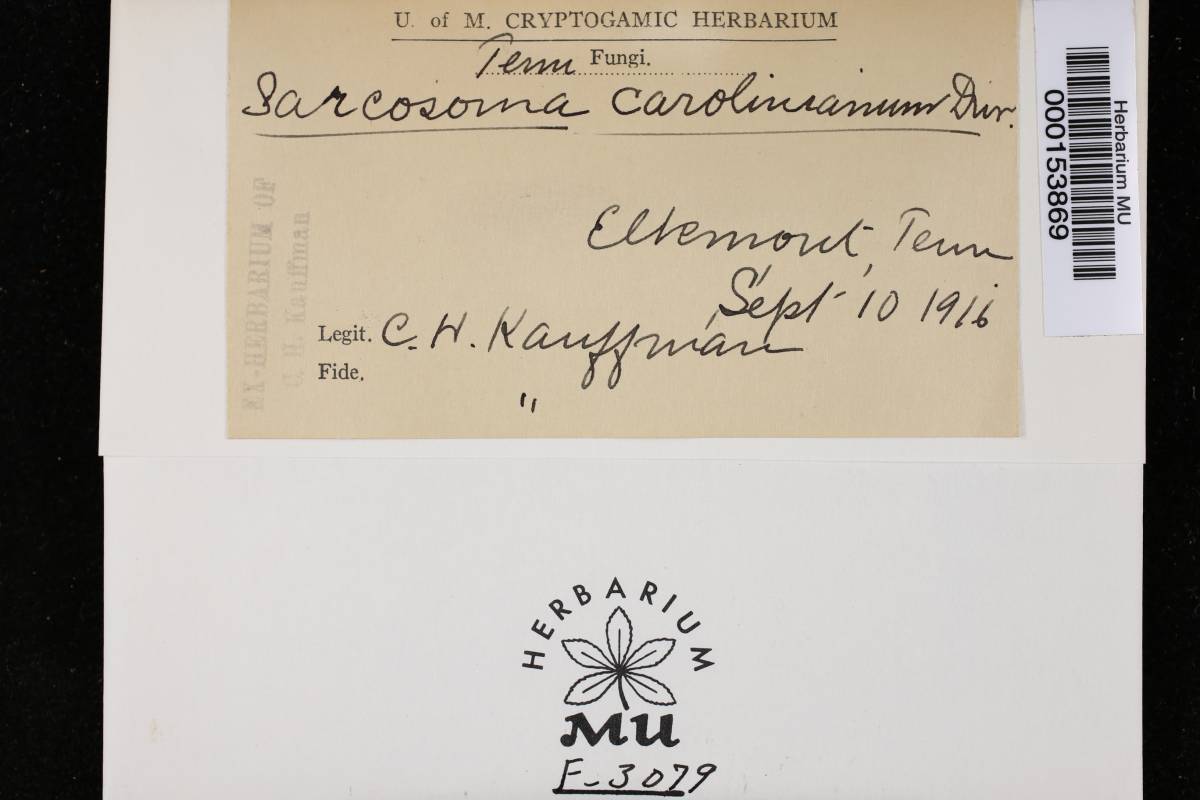 U. of M. CRYPTOGAMIC HERBARIUM
Tenn Fungi.
Sarcosoma carolinianum Dur.
Elkemont, Tenn
Sept 10 1916
Legit. C. H. Kauffman
Fide.
"
EX-HERBARIUM OF
C. H. Kauffman
Herbarium MU
000153869
HERBARIUM
MU
F-3079